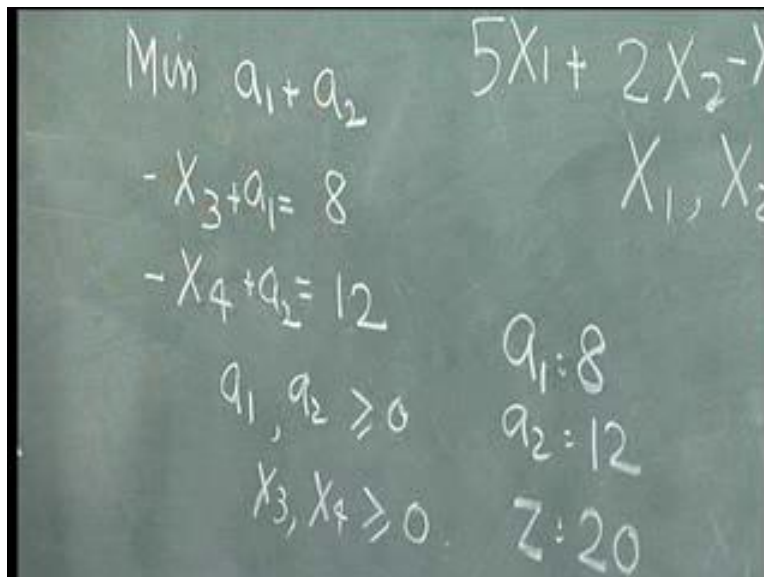 Min a₁ + a₂
-X₃ + a₁ = 8
-X₄ + a₂ = 12
a₁, a₂ ≥ 0
X₃, X₄ ≥ 0
5X₁ + 2X₂ -X
X₁, X₂
a₁ : 8
a₂ : 12
Z : 20